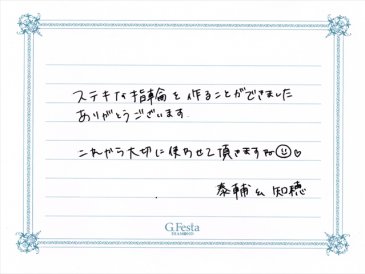 ステキな指輪を作ることができました
ありがとうございます
これから大切に使わせて頂きますね☺♡
泰輔 & 知穂
G.Festa
DIAMOND